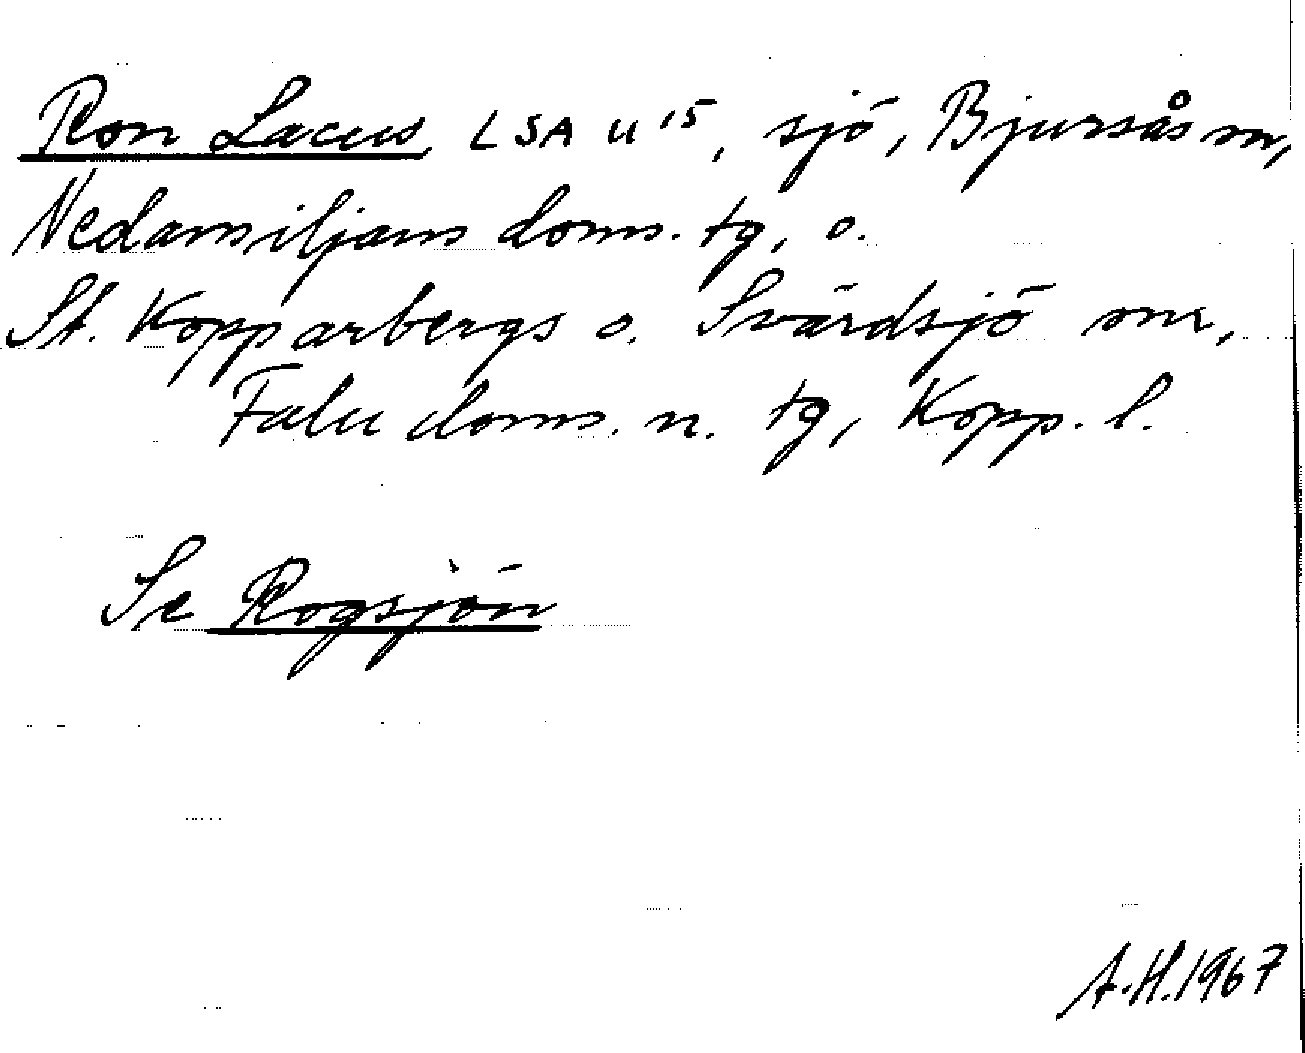 Ron Lacus, LSA U 15, sjö, Bjursås sn,
Nedansiljans doms. tg, o.
St. Kopparbergs o. Svärdsjö snr,
Falu doms. n. tg, Kopp. l.
Se Rogsjön
A.H. 1967